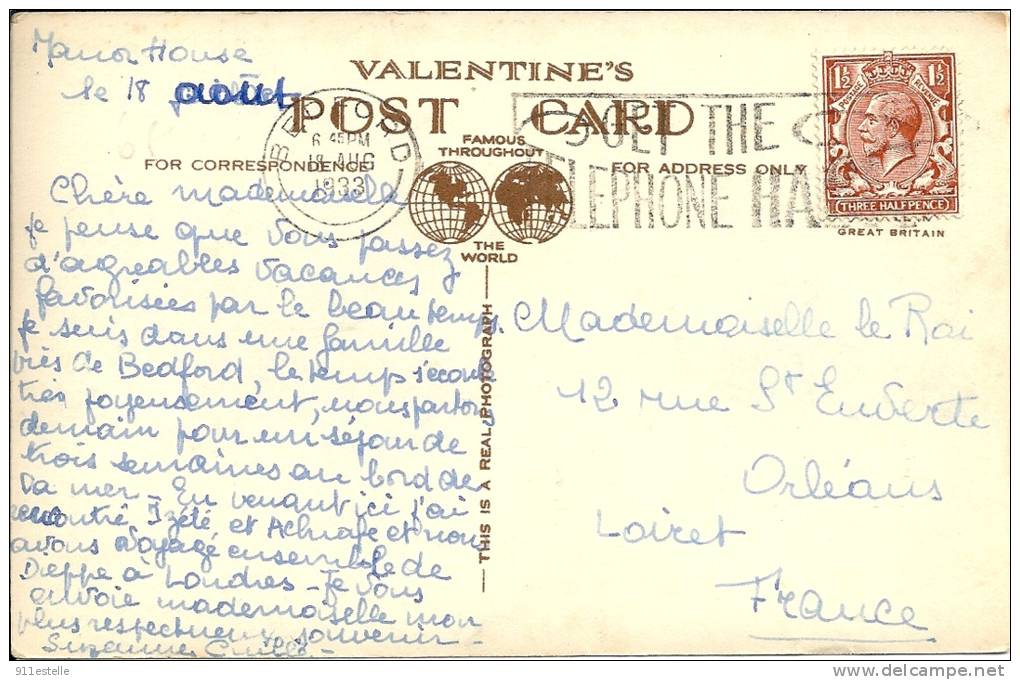 Manor House
le 18 août
VALENTINE'S
POST CARD
FAMOUS
THROUGHOUT
THE
WORLD
FOR CORRESPONDENCE
FOR ADDRESS ONLY
BEDFORD
6 45 PM
18 AUG
1933
GET THE
TELEPHONE HABIT
1½ 1½
POSTAGE REVENUE
THREE HALFPENCE
GREAT BRITAIN
Chère mademoiselle
Je pense que vous passez
d'agréables vacances
favorisées par le beau temps.
Je suis dans une famille
près de Bedford, le temps s'écoule
très joyeusement, nous partons
demain pour un séjour de
trois semaines au bord de
la mer - En venant ici j'ai
rencontré et et nous
avons voyagé ensemble de
Dieppe à Londres - Je vous
envoie mademoiselle mon
plus respectueux souvenir -
Suzanne
THIS IS A REAL PHOTOGRAPH
Mademoiselle le Roi
12 rue St Euverte
Orléans
Loiret
France
911estelle
delcampe.net